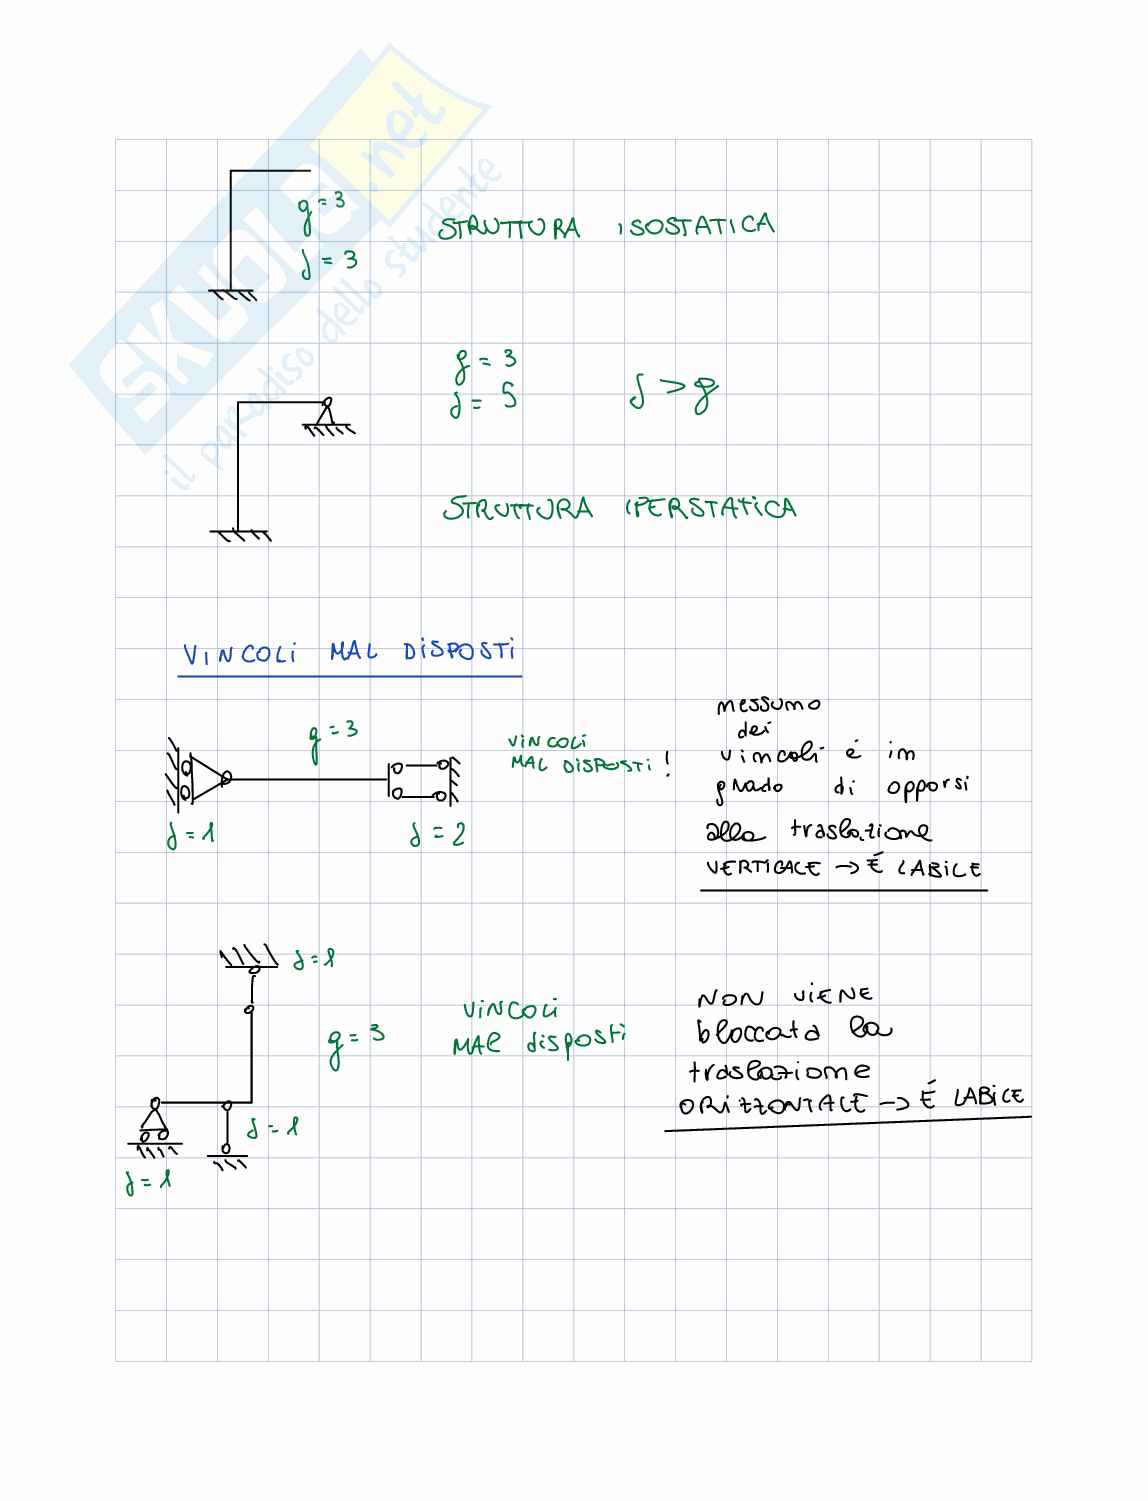 SKUOLA.net
il paradiso dello studente
g = 3
δ = 3
STRUTTURA ISOSTATICA
g = 3
δ = 5
δ > g
STRUTTURA IPERSTATICA
VINCOLI MAL DISPOSTI
g = 3
δ = 1
δ = 2
VINCOLI
MAL DISPOSTI !
nessuno
dei
vincoli é in
grado di opporsi
alla traslazione
VERTICALE → É LABILE
δ = 1
g = 3
δ = 1
δ = 1
VINCOLI
MAL disposti
NON VIENE
bloccata la
traslazione
ORIZZONTALE → É LABILE